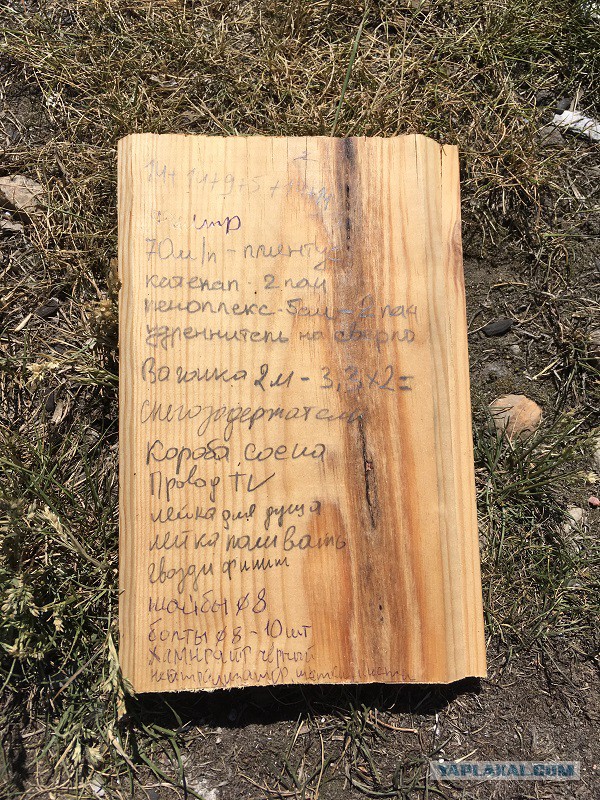 14+14+9+5+
70м/п - плинту
катепал - 2 пач
пеноплекс - 5см - 2 пач
удленнитель на сверло
Вагонка 2м - 3,3х2=
Снегозадержатели
Короба сосна
Провод TV
лейка для душа
лейка поливать
гвозди финиш
шайбы ø8
болты ø8 - 10 шт
Хамнгайт чёрный
YAPLAKAL.COM